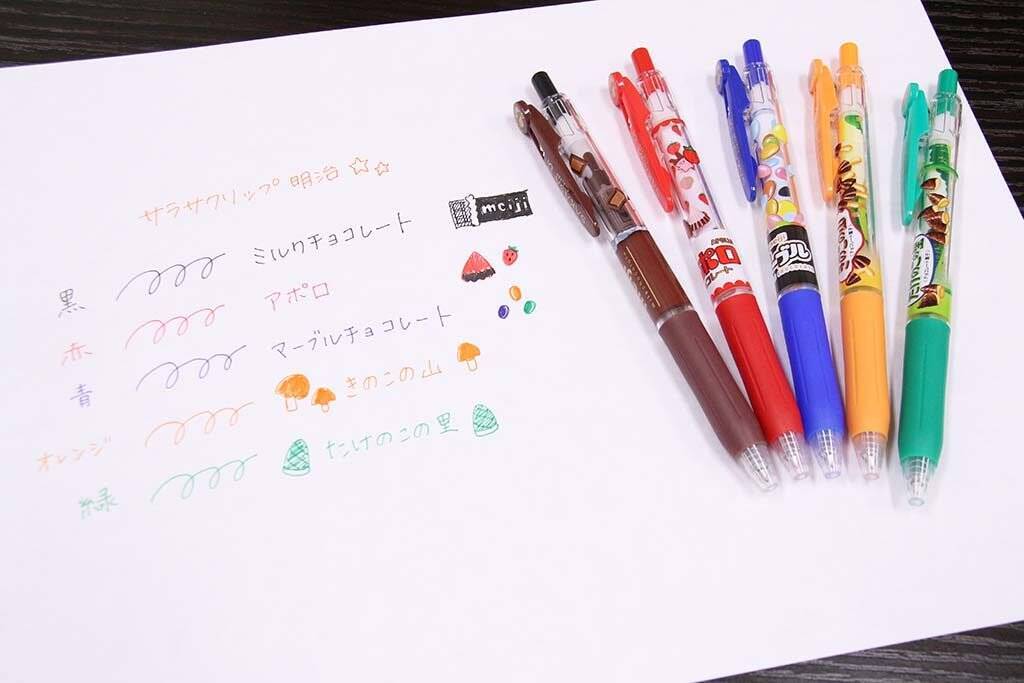 サラサクリップ 明治 ☆☆
黒 ミルクチョコレート meiji
赤 アポロ
青 マーブルチョコレート
オレンジ きのこの山
緑 たけのこの里
ポロ
ーブル